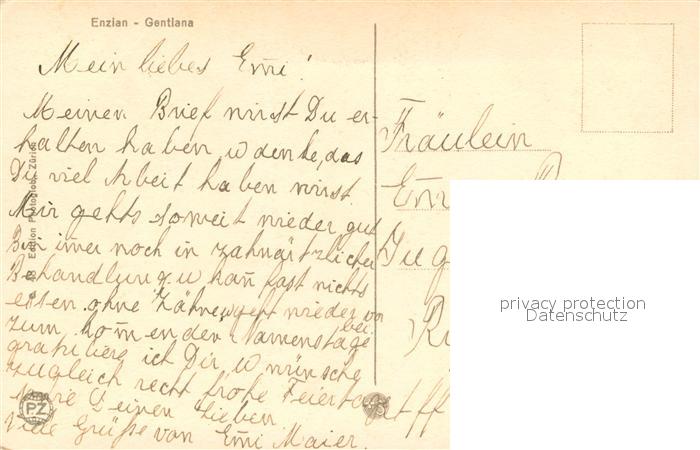 Enzian - Gentiana
Mein liebes Emi!
Meinen Brief wirst Du er-
halten haben u denke, das
Du viel Arbeit haben wirst.
Mir gehts soweit wieder gut
Bin imer noch in zahnärtzlicher
Behandlung u kan fast nichts
essen ohne Zähne, geht wieder vor
bei.
Zum kommenden Namenstage
gratuliere ich Dir u wünsche
zugleich recht frohe Feiertage
Deinen Lieben
Viele Grüße von Emi Maier.
Edition Photoglob, Zürich
PZ
Fräulein
privacy protection
Datenschutz